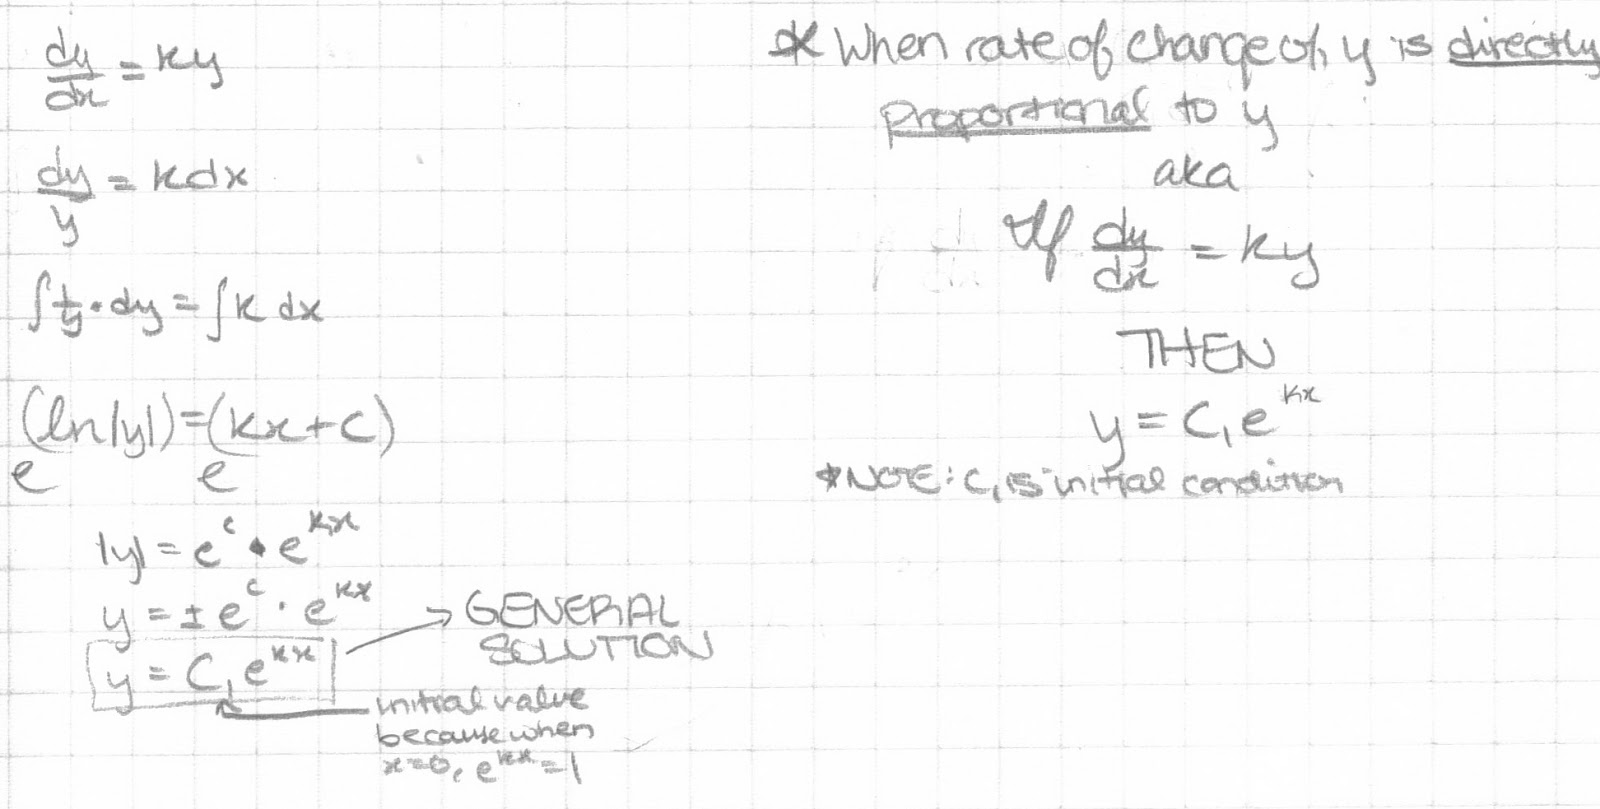 dy/dx = ky
dy/y = kdx
∫1/y · dy = ∫k dx
e^(ln|y|) = e^(kx+c)
|y| = e^c • e^kx
y = ± e^c · e^kx
y = C₁e^kx → GENERAL
SOLUTION
initial value
because when
x=0, e^kx=1
* When rate of change of y is directly
proportional to y
aka
If dy/dx = ky
THEN
y = C₁e^kx
*NOTE: C₁ is initial condition